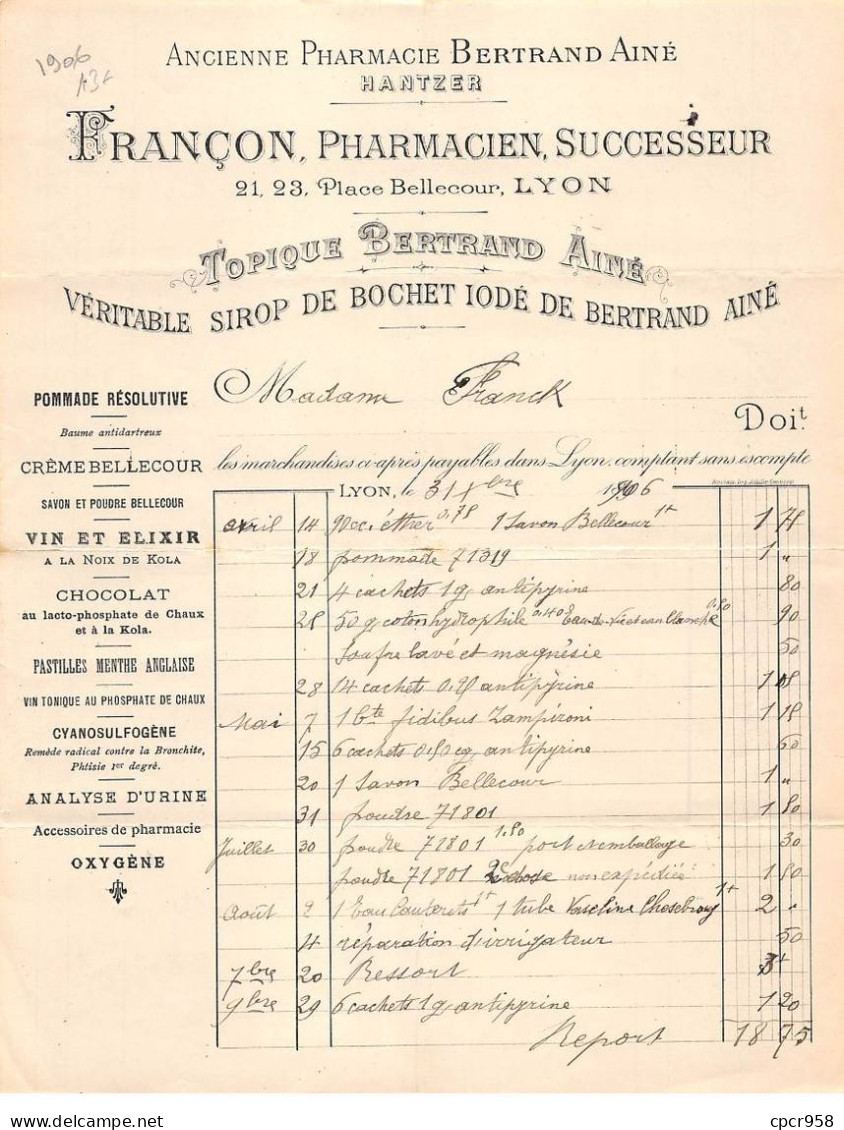 1906
ANCIENNE PHARMACIE BERTRAND AINÉ
HANTZER
FRANÇON, PHARMACIEN, SUCCESSEUR
21, 23, Place Bellecour, LYON
TOPIQUE BERTRAND AINÉ
VÉRITABLE SIROP DE BOCHET IODÉ DE BERTRAND AINÉ
Madame Franck
Doit.
les marchandises ci-après payables dans Lyon, comptant sans escompte
POMMADE RÉSOLUTIVE
Baume antidartreux
CRÈME BELLECOUR
SAVON ET POUDRE BELLECOUR
VIN ET ELIXIR
A LA NOIX DE KOLA
CHOCOLAT
au lacto-phosphate de Chaux
et à la Kola.
PASTILLES MENTHE ANGLAISE
VIN TONIQUE AU PHOSPHATE DE CHAUX
CYANOSULFOGÈNE
Remède radical contre la Bronchite,
Phtisie 1er degré.
ANALYSE D'URINE
Accessoires de pharmacie
OXYGÈNE
LYON, le 31 Xbre 1906
avril 14 90cc éther 0,75 1 Savon Bellecour 1+ 1 75
18 pommade 71319 1 "
21 4 cachets 1g antipyrine 80
25 50 g coton hydrophile 0.40 0,50 90
Soufre lavé et magnésie 50
28 14 cachets 0,25 antipyrine 1 05
Mai 7 1 bte fidibus Zampironi 1 15
15 6 cachets 0,50 cg antipyrine 50
20 1 Savon Bellecour 1 "
31 poudre 71801 1 50
Juillet 30 poudre 71801 1.50 port et emballage 30
poudre 71801 non expédiée 1 50
Août 2 1 Eau Cauterets 1+ 1 tube Vaseline Chosebroug 1+ 2 "
4 réparation d'irrigateur 50
7bre 20 Ressort 3+
9bre 29 6 cachets 1g antipyrine 1 20
Report 18 75
cpcr958